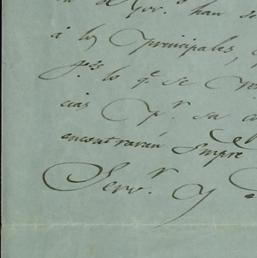 han se
á los principales,
lo q.e se
cias p.r su
encontrarán Smpre
Serv.r y